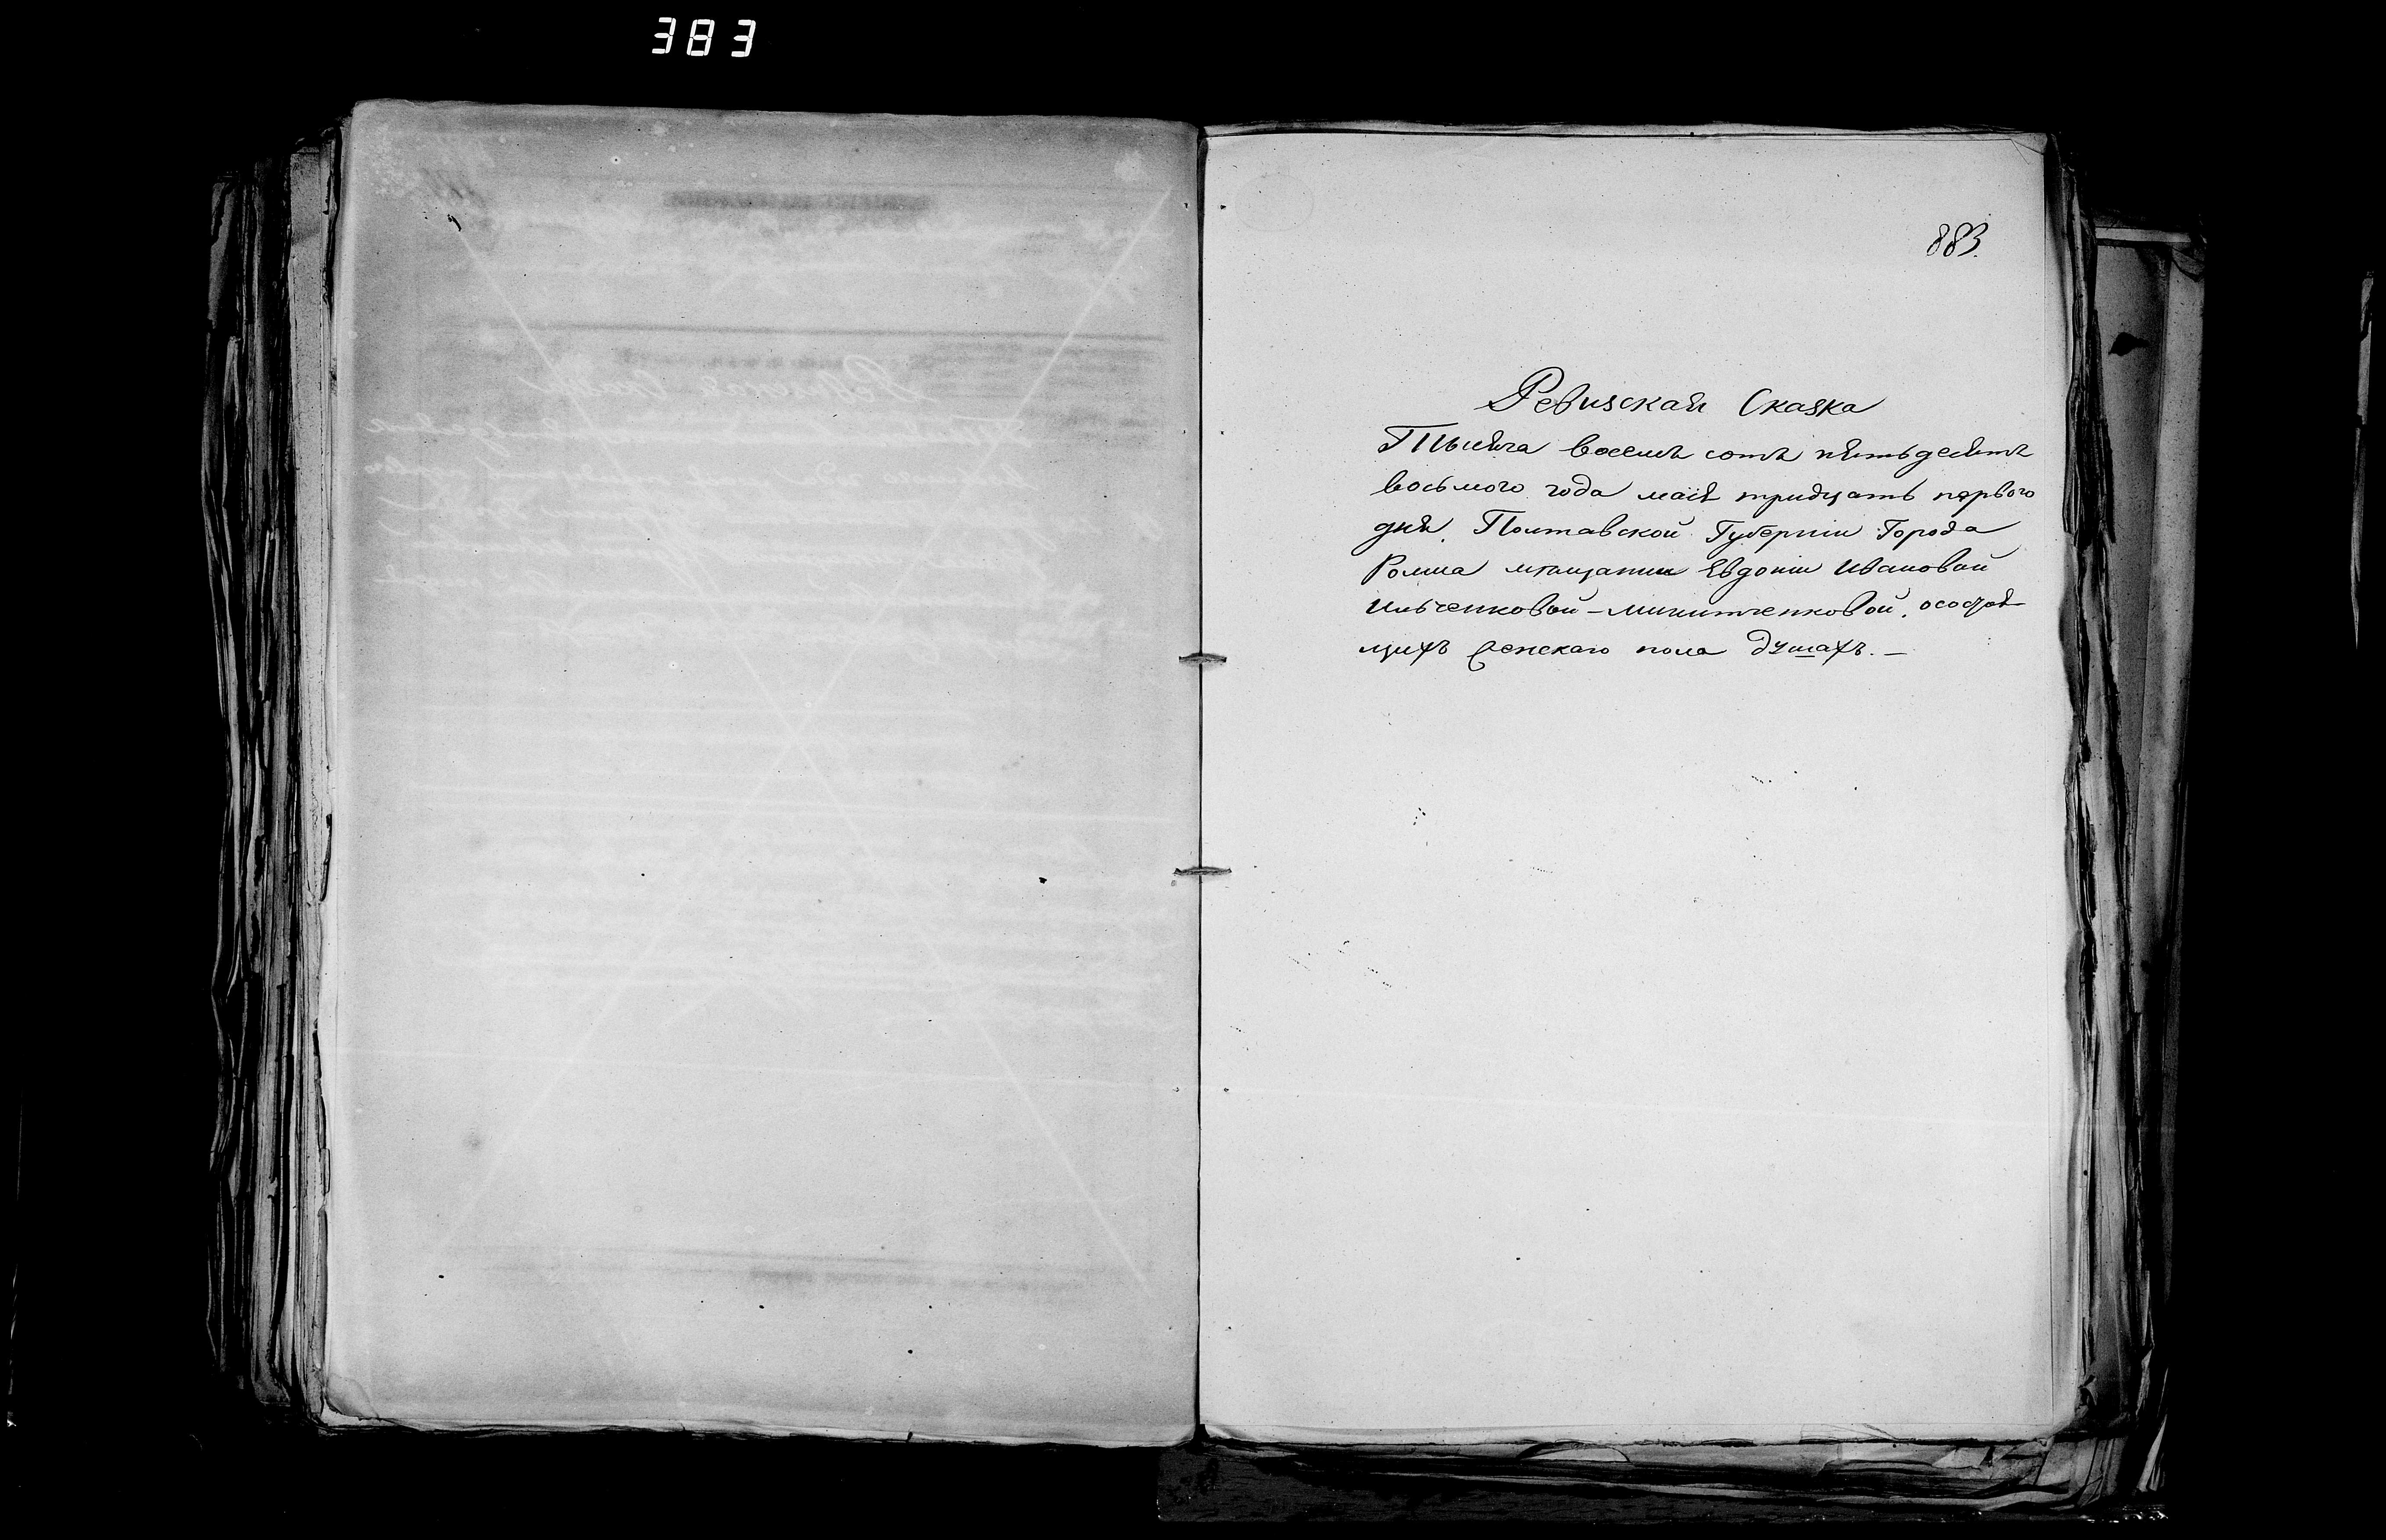 383
883.
Ревизская Сказка
Тысяча восемь сотъ пятьдесятъ
восьмого года маія тридцать первого
дня. Полтавской Губерніи Города
Ромна мѣщанки Евдокіи Ивановой
Ильченковой-Микитченковой. осостоя-
щихъ женскаго пола душахъ. —